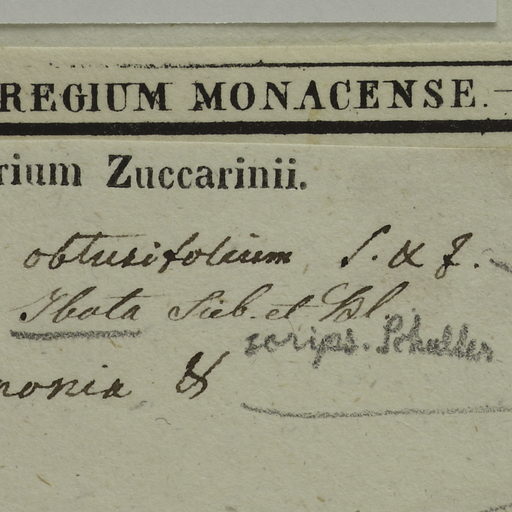 REGIUM MONACENSE.
rium Zuccarinii.
obtusifolium S. & Z.
Ibota Sieb. et
scrips. Schultes
ponia &